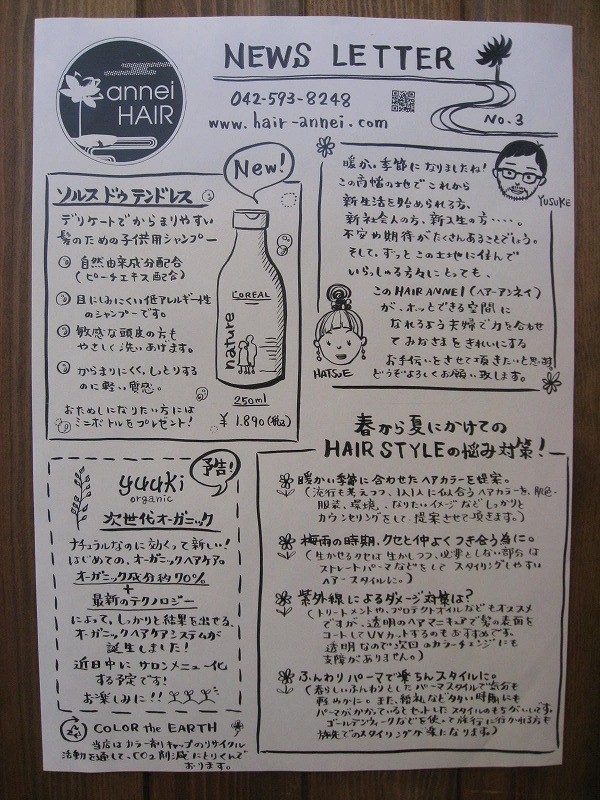 annei
HAIR
NEWS LETTER
042-593-8248
www.hair-annei.com
No.3
New!
ソルス ドゥ テンドレス
デリケートでからまりやすい
髪のための子供用シャンプー
自然由来成分配合
(ピーチエキス配合)
目にしみにくい低アレルギー性
のシャンプーです。
敏感な頭皮の方も
やさしく洗いあげます。
からまりにくく、しっとりする
のに軽い質感。
おためしになりたい方には
ミニボトルをプレゼント!
COREAL
nature
250ml
¥1,890(税込)
暖かい季節になりましたね!
この高幡の地でこれから
新生活を始められる方、
新社会人の方、新入生の方・・・・。
不安や期待がたくさんあることでしょう。
そして、ずっとこの土地に住んで
いらっしゃる方々にとっても、
このHAIR ANNEI(ヘアーアンネイ)
が、ホッとできる空間に
なれるよう夫婦で力を合わせ
てみなさまをきれいにする
お手伝いをさせて頂きたいと思います。
どうぞよろしくお願い致します。
YUSUKE
HATSUE
予告!
yuuki
organic
次世代オーガニック
ナチュラルなのに効くって新しい!
はじめての、オーガニックヘアケア。
オーガニック成分約70%
+
最新のテクノロジー
によって、しっかりと結果を出せる、
オーガニックヘアケアシステムが
誕生しました!
近日中にサロンメニュー化
する予定です!
お楽しみに!!
COLOR the EARTH
当店はカラー剤キャップのリサイクル
活動を通して、CO2削減にとりくんで
おります。
春から夏にかけての
HAIR STYLEの悩み対策!
暖かい季節に合わせたヘアカラーを提案。
(流行も考えつつ、1人1人に似合うヘアカラーを、肌色・
服装、環境、なりたいイメージなどしっかりと
カウンセリングをして提案させて頂きます。)
梅雨の時期、クセと仲よくつき合う為に。
(生かせるクセは生かしつつ、必要としない部分は
ストレートパーマなどをして スタイリングしやすい
ヘアースタイルに。)
紫外線によるダメージ対策は?
(トリートメントや、プロテクトオイルなどもオススメ
ですが、透明のヘアマニキュアで髪の表面を
コートしてUVカットするのもおすすめです。
透明なので次回のカラーチェンジにも
支障がありません。)
ふんわりパーマで楽ちんスタイルに。
(春らしいふんわりとしたパーマスタイルで気分も
軽めかに。また、
パーマがかかっているとセットしたスタイルのもちがいいです。
ゴールデンウィークなどを使って旅行に行かれる方も
旅先でのスタイリングが楽になります)